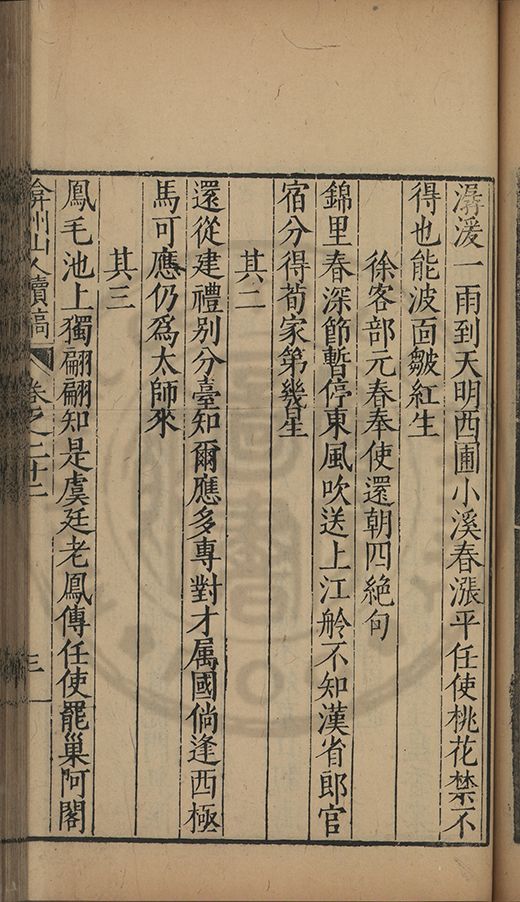 潺湲一雨到天明西圃小溪春漲平任使桃花禁不
得也能波面皺紅生
徐客部元春奉使還朝四絕句
錦里春深節暫停東風吹送上江舲不知漢省郎官
宿分得荀家第幾星
其二
還從建禮別分臺知爾應多專對才属國倘逢西極
馬可應仍爲太師來
其三
鳳毛池上獨翩翩知是虞廷老鳳傳任使罷巢阿閣
弇州山人續稿 卷之二十二 三